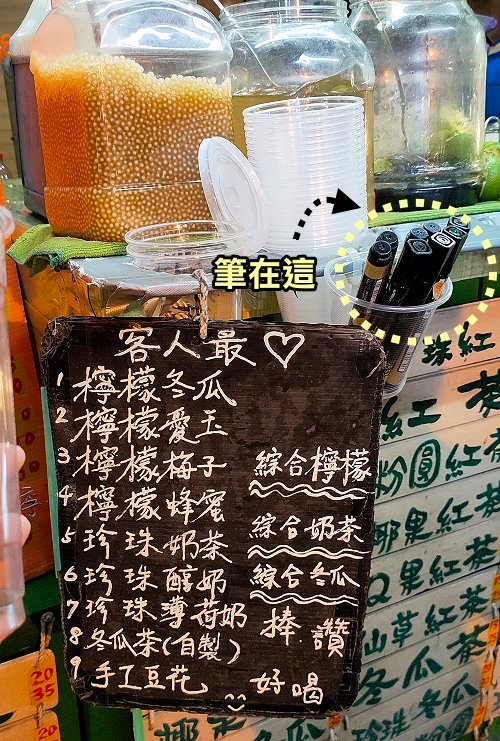 筆在這
客人最♡
1 檸檬冬瓜
2 檸檬愛玉
3 檸檬梅子
4 檸檬蜂蜜
5 珍珠奶茶
6 珍珠醇奶
7 珍珠薄荷奶
8 冬瓜茶(自製)
9 手工豆花
綜合檸檬
綜合奶茶
綜合冬瓜
捧 讚
好喝
珠紅
紅茶
粉圓紅茶
椰果紅茶
Q果紅茶
仙草紅茶
冬瓜茶
珍珠冬瓜
椰果
20
35
20